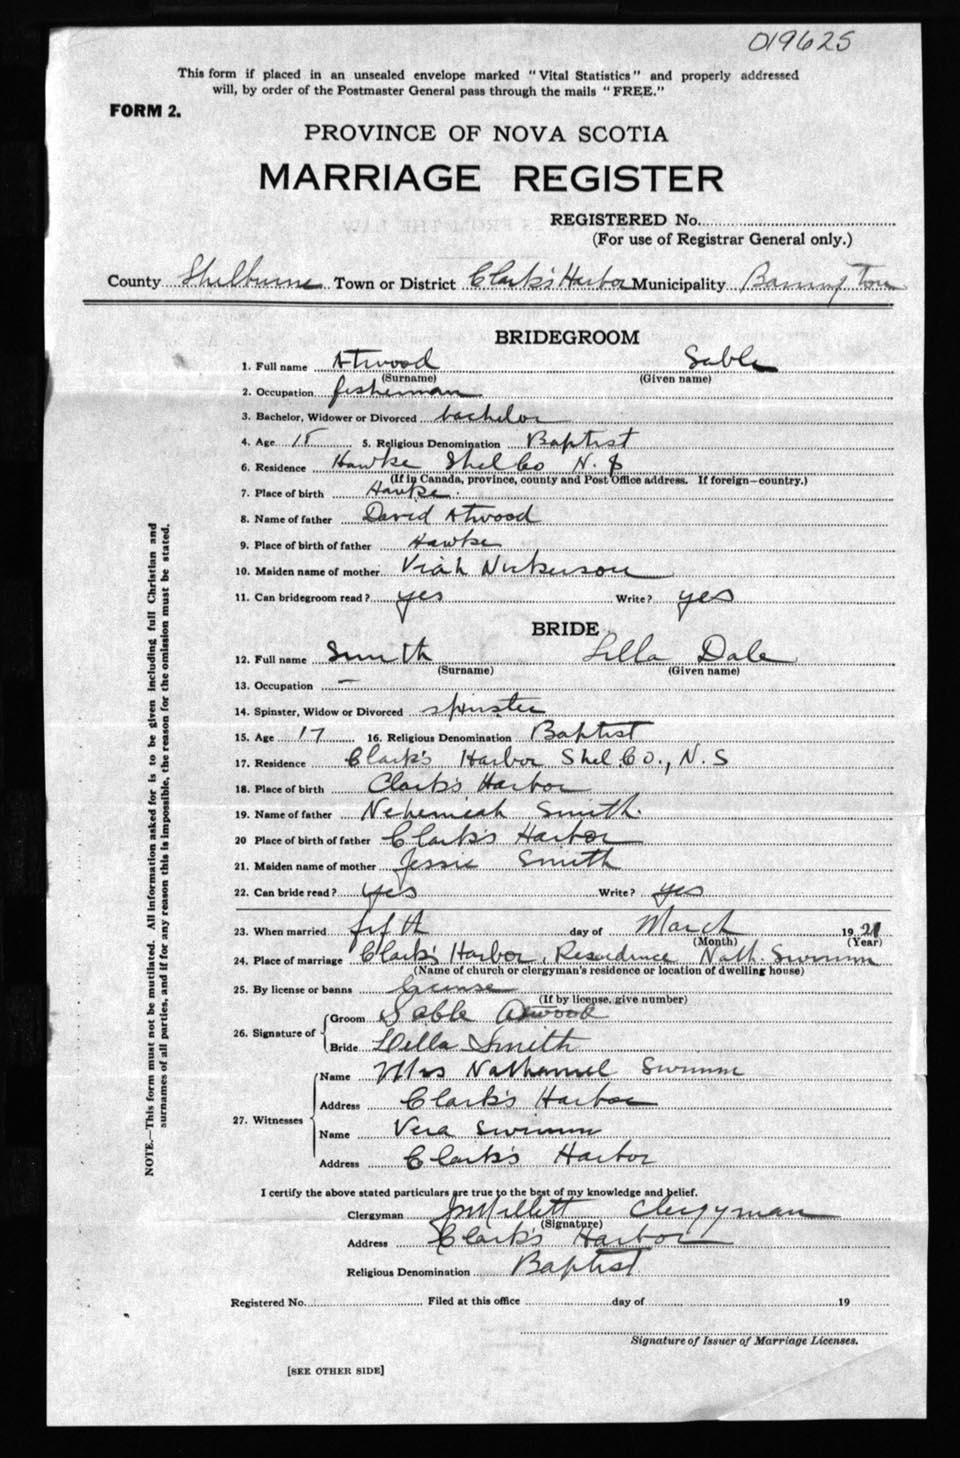 019625
This form if placed in an unsealed envelope marked "Vital Statistics" and properly addressed
will, by order of the Postmaster General pass through the mails "FREE."
FORM 2.
PROVINCE OF NOVA SCOTIA
MARRIAGE REGISTER
REGISTERED No.
(For use of Registrar General only.)
County Shelburne Town or District Clark's Harbor Municipality Barrington
BRIDEGROOM
1. Full name Atwood Sable
(Surname) (Given name)
2. Occupation fisherman
3. Bachelor, Widower or Divorced bachelor
4. Age 18 5. Religious Denomination Baptist
6. Residence Hawke Shel Co N. S
(If in Canada, province, county and Post Office address. If foreign—country.)
7. Place of birth Hawke.
8. Name of father David Atwood
9. Place of birth of father Hawke
10. Maiden name of mother Nickerson
11. Can bridegroom read? yes Write? yes
BRIDE
12. Full name Smith Lella Dale
(Surname) (Given name)
13. Occupation —
14. Spinster, Widow or Divorced spinster
15. Age 17 16. Religious Denomination Baptist
17. Residence Clark's Harbor Shel. Co., N. S
18. Place of birth Clark's Harbor
19. Name of father Nehemiah Smith.
20 Place of birth of father Clark's Harbor
21. Maiden name of mother Jessie Smith
22. Can bride read? yes Write? yes
23. When married fifth day of March 1921
(Month) (Year)
24. Place of marriage Clark's Harbor, Residence Nath. Swimm
(Name of church or clergyman's residence or location of dwelling house)
25. By license or banns license
(If by license, give number)
26. Signature of Groom Sable Atwood
Bride Lella Smith
27. Witnesses Name Mrs Nathaniel Swimm
Address Clark's Harbor
Name Vera Swimm
Address Clark's Harbor
I certify the above stated particulars are true to the best of my knowledge and belief.
Clergyman Millett Clergyman
(Signature)
Address Clark's Harbor
Religious Denomination Baptist
Registered No. Filed at this office day of 19
Signature of Issuer of Marriage Licenses.
[SEE OTHER SIDE]
NOTE.—This form must not be mutilated. All information asked for is to be given including full Christian and
surnames of all parties, and if for any reason this is impossible, the reason for the omission must be stated.